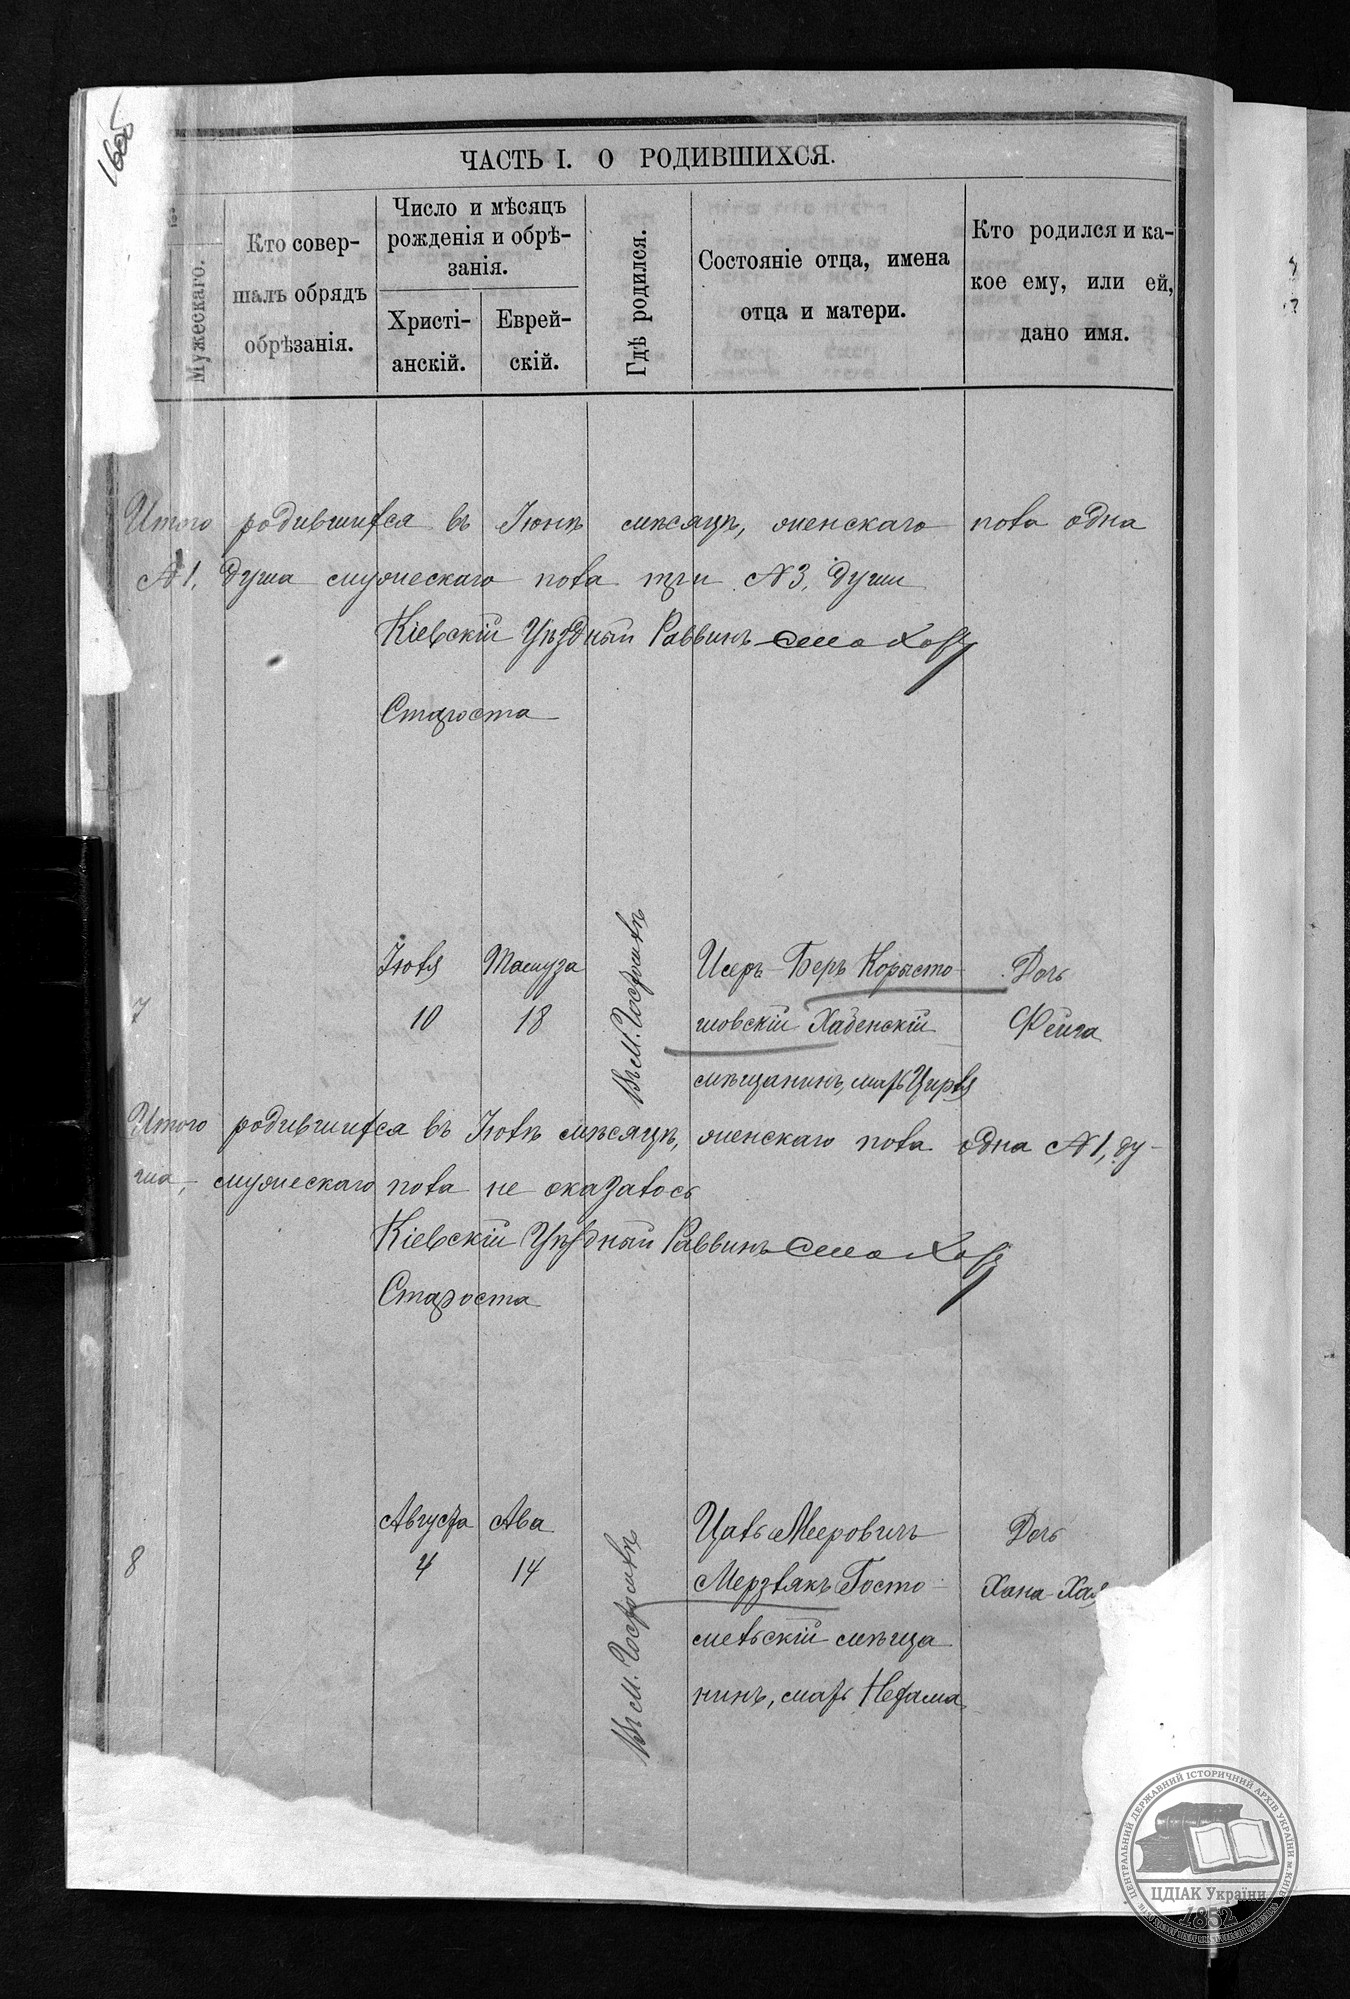 1605
ЧАСТЬ I. О РОДИВШИХСЯ.
Мужескаго.
Кто совер-
шалъ обрядъ
обрѣзанія.
Число и мѣсяцъ
рожденія и обрѣ-
занія.
Христі-
анскій.
Еврей-
скій.
Гдѣ родился.
Состояніе отца, имена
отца и матери.
Кто родился и ка-
кое ему, или ей,
дано имя.
Итого родившихся въ Іюнѣ мѣсяцѣ, женскаго пола одна
№ 1, душа мужескаго пола три № 3, души
Кіевскій Уѣздный Раввинъ
Староста
7
Іюля
10
Тамуза
18
Въ м. Гостомлѣ
Исеръ-Беръ Коросты-
шовскій Хабенскій
мѣщанинъ, мать Цирля
Дочь
Фейга
Итого родившихся въ Іюлѣ мѣсяцѣ, женскаго пола одна № 1, ду-
ша, мужескаго пола не оказалось
Кіевскій Уѣздный Раввинъ
Староста
8
Августа
4
Ава
14
Въ м. Гостомлѣ
Цаль Мееровичъ
Мерзлякъ Госто-
мельскій мѣща
нинъ, мать Нехама
Дочь
Хана-Хая
ЦЕНТРАЛЬНИЙ ДЕРЖАВНИЙ ІСТОРИЧНИЙ АРХІВ УКРАЇНИ М. КИЇВ
ЦДІАК України
1852